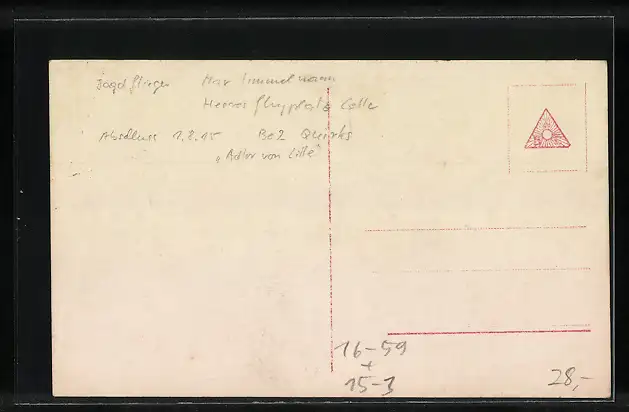 Jagdflieger Max Immelmann
Heeresflugplatz Celle
Abschuss 1.8.15 Bei
"Adler von Lille"
16-59
+
15-3
28,-